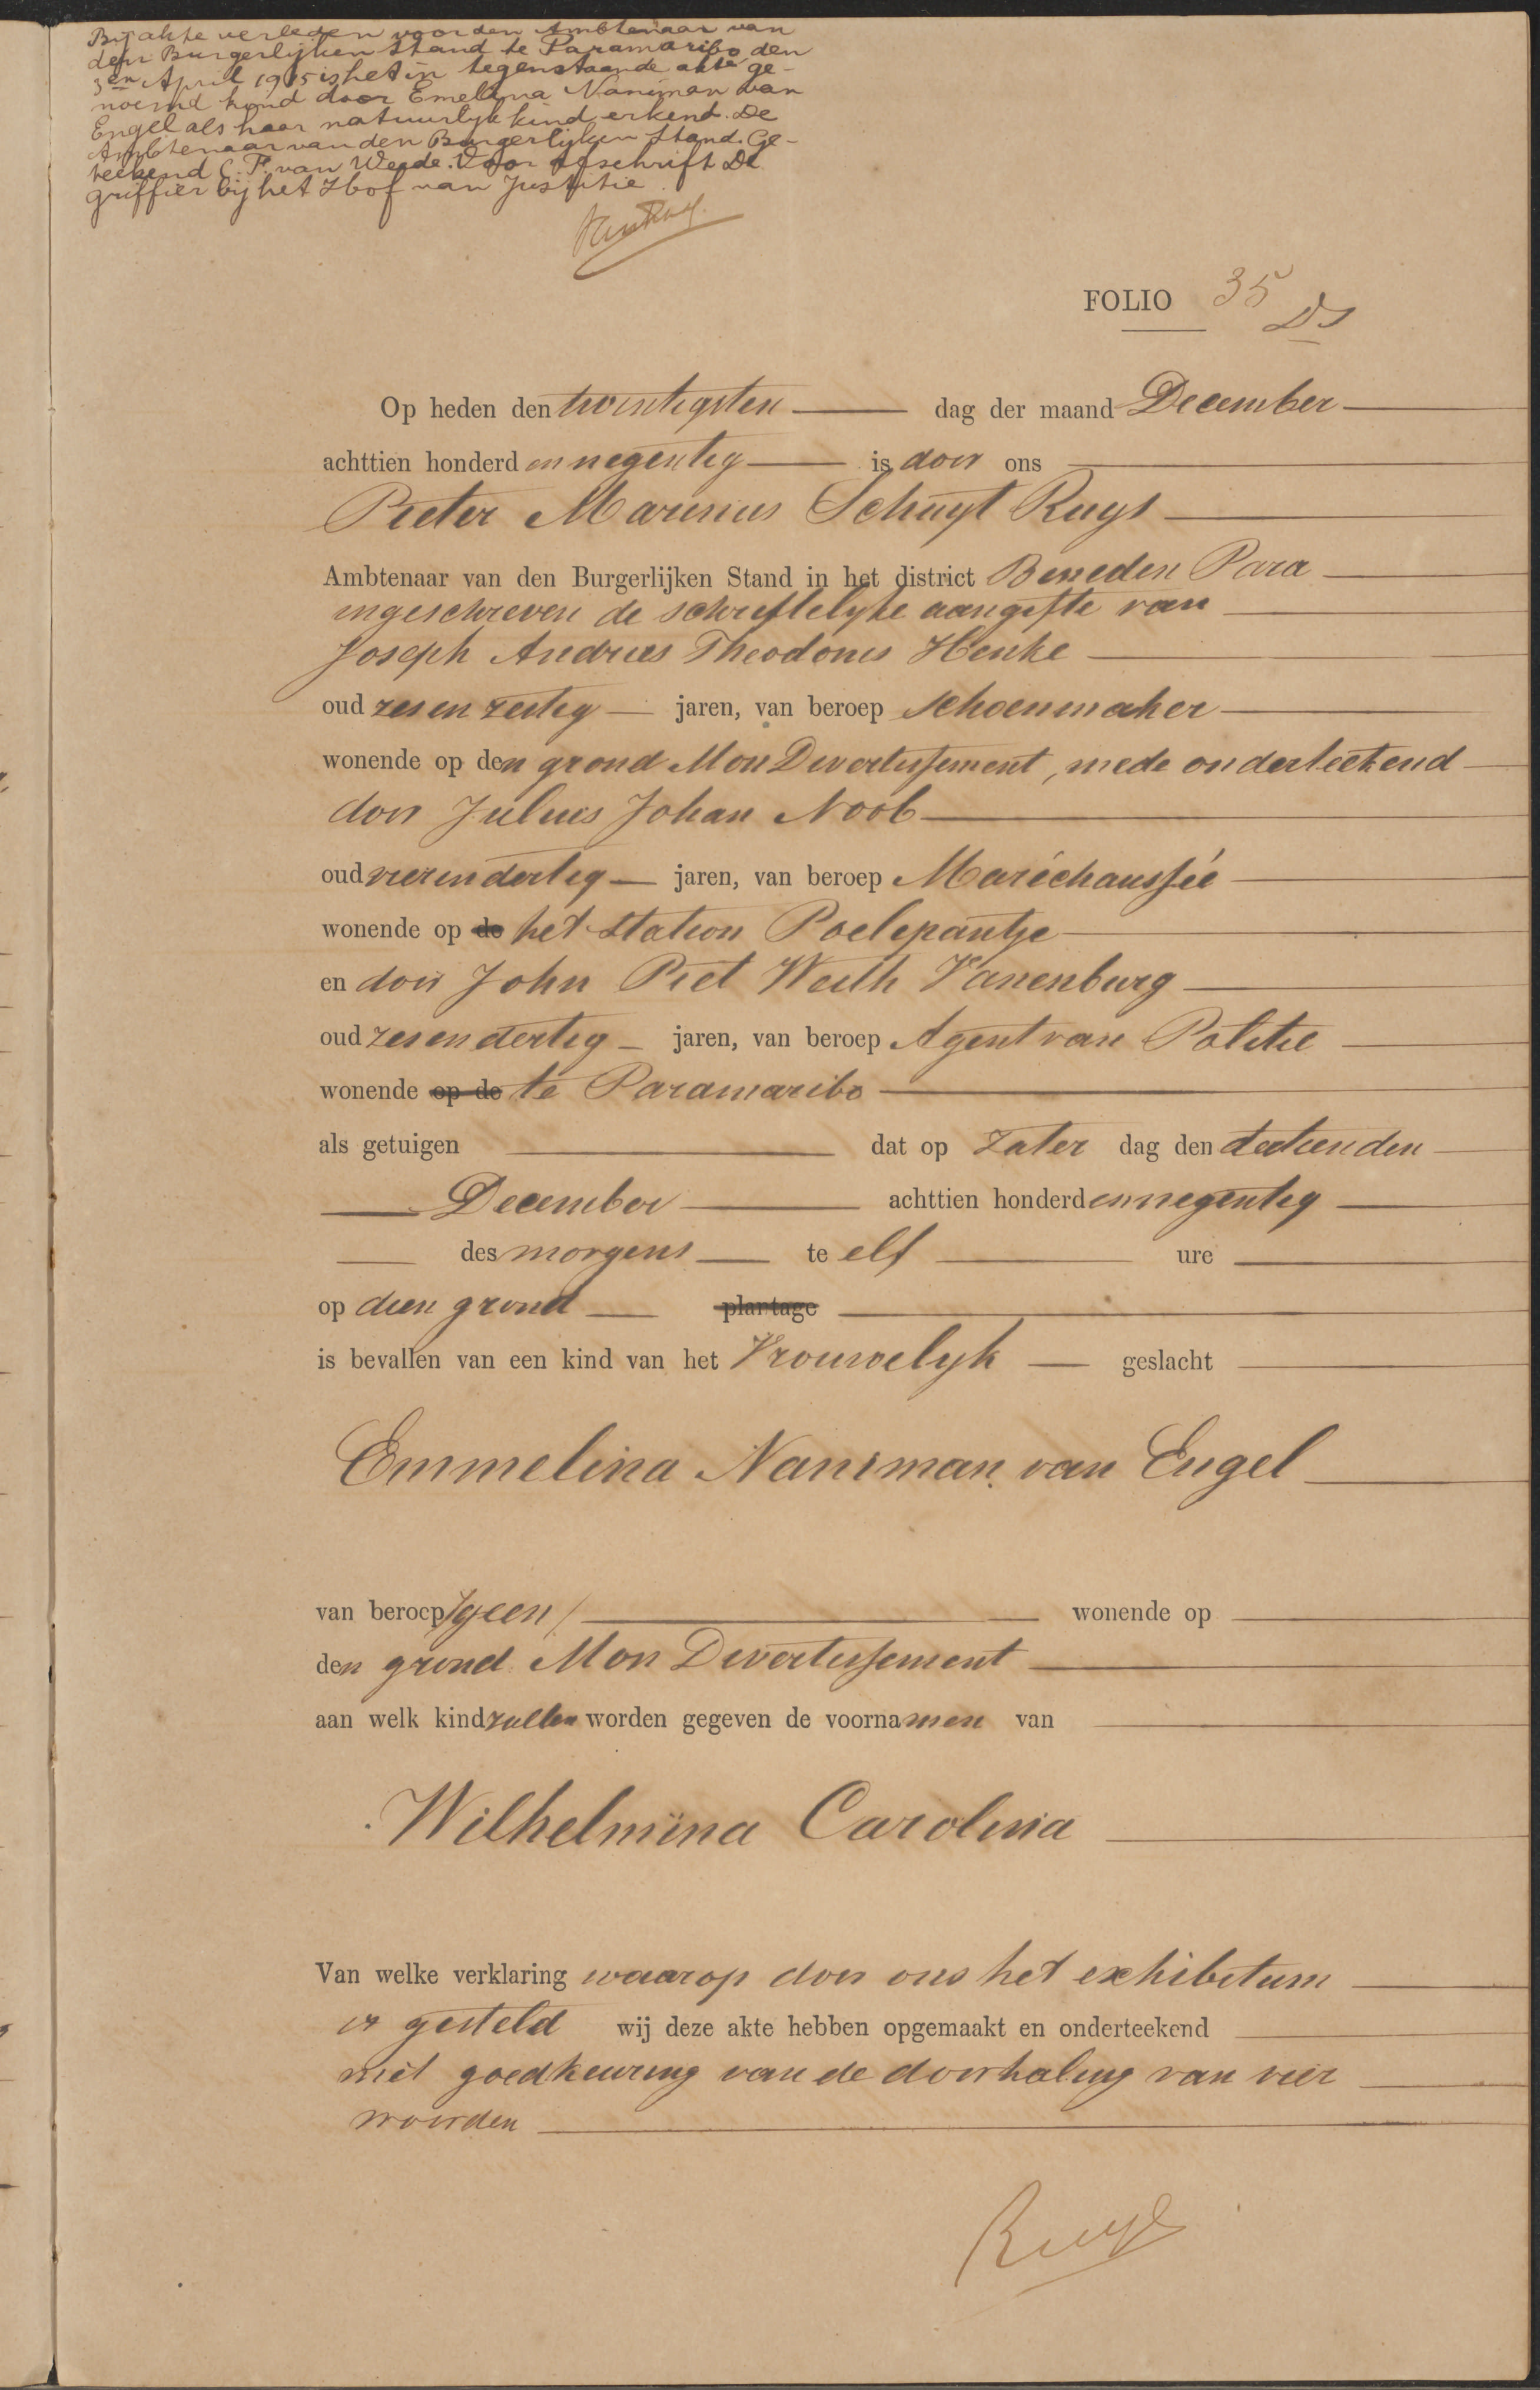 Bij akte verleden voor den Ambtenaar van
den Burgerlijken Stand te Paramaribo den
3en April 1915 is het in tegenstaande akte ge-
noemd kind door Emelina Naniman van
Engel als haar natuurlijk kind erkend. De
Ambtenaar van den Burgerlijken Stand. Ge-
teekend C. F. van Weede. Voor afschrift De
griffier bij het Hof van Justitie.
FOLIO 35
Op heden den twintigsten dag der maand December
achttien honderd en negentig is door ons
Pieter Marinus Schuyt Ruys
Ambtenaar van den Burgerlijken Stand in het district Beneden Para
ingeschreven de schriftelyke aangifte van
Joseph Andries Theodorus Henke
oud zes en zestig jaren, van beroep schoenmaker
wonende op den grond Mon Divertissement, mede onderteekend
door Julius Johan Noob
oud vier en dertig jaren, van beroep Maréchaussée
wonende op de het station Poelepantje
en door John Piet Weith Vanenburg
oud zes en dertig jaren, van beroep Agent van Politie
wonende op de te Paramaribo
als getuigen dat op Zater dag den dertienden
December achttien honderd en negentig
des morgens te elf ure
op dien grond plantage
is bevallen van een kind van het Vrouwelyk geslacht
Emmelina Naniman van Engel
van beroep /geen/ wonende op
den grond Mon Divertissement
aan welk kind zullen worden gegeven de voornamen van
Wilhelmina Carolina
Van welke verklaring waarop door ons het exhibitum
is gesteld wij deze akte hebben opgemaakt en onderteekend
met goedkeuring van de doorhaling van vier
woorden
Ruys